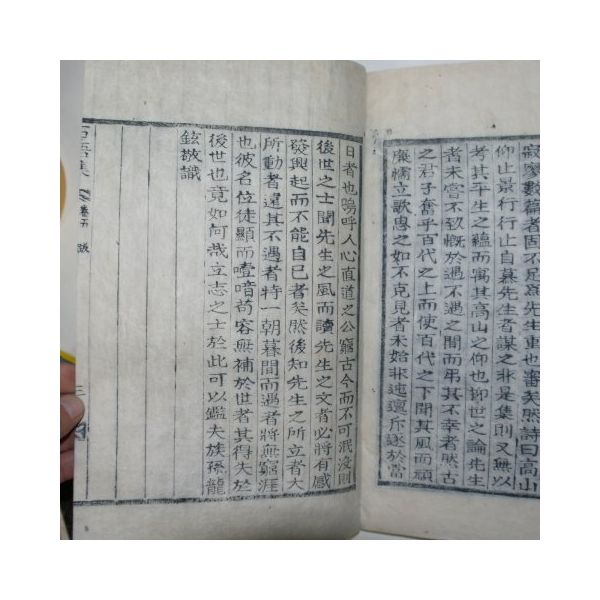 寂寥數篇者固不足爲先生重也審矣然詩曰高山
仰止景行行止自慕先生者謀之非是集則又無以
考其平生之蘊而寓其高山之仰也抑世之論先生
者未嘗不致慨於遇不遇之間而吊其不幸者然古
之君子奮乎百代之上而使百代之下聞其風而頑
廉懦立歌思之如不克見者未始非迍邅斥逐於當
日者也嗚呼人心直道之公窮古今而不可泯沒則
後世之士聞先生之風而讀先生之文者必將有感
發興起而不能自已者矣然後知先生之所立者大
所動者遠其不遇者特一朝暮間而過者將無窮涯
也彼名位徒顯而噎喑苟容無補於世者其得失於
後世也竟如何哉立志之士於此可以鑑夫族孫龍
鉉敬識
集 卷五 跋 三